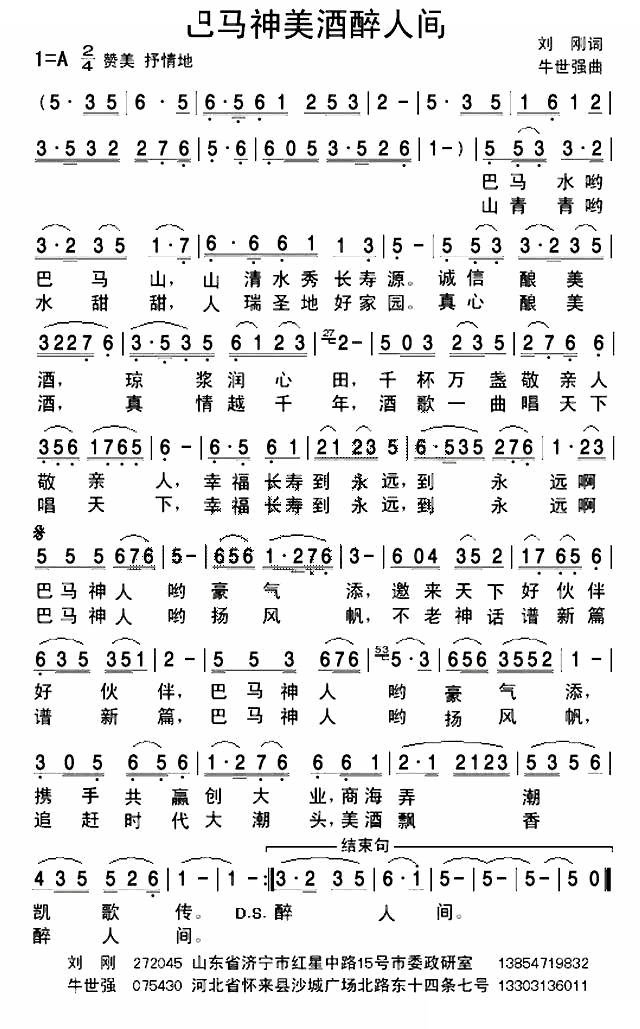 巴马神美酒醉人间
刘 刚词
1=A 2/4 赞美 抒情地
牛世强曲
(5· 35 | 6· 5 | 6·561 253 | 2- | 5· 35 | 1 6 12 |
3·532 276 | 5·6 | 6053·526 | 1-) | 5 53 3·2 |
巴马 水哟
山青 青哟
3·2 35 1·7 | 6· 661 13 | 5- | 5 53 3·235 |
巴 马 山, 山 清水秀长寿源。诚信 酿 美
水 甜 甜, 人 瑞圣地好家园。真心 酿 美
32276 | 3·535 6123 | 27 2- | 503 235 | 727 656 |
酒, 琼 浆润心 田,千杯万 盏敬亲人
酒, 真 情越千 年,酒歌一 曲唱天下
356 1765 | 6- | 6·5 61 | 21 23 5 | 6·535 276 | 1·23 |
敬 亲 人,幸福长寿到永远,到 永 远啊
唱 天 下,幸福长寿到永远,到 永 远啊
5 5 5 676 | 5- | 656 1·276 | 3- | 604 352 | 1765 6 |
巴马神人 哟豪 气 添,邀来天下好伙伴
巴马神人 哟扬 风 帆,不老神话谱新篇
635 351 | 2- | 5 5 3 676 | 53 5·3 | 656 3552 | 1- |
好 伙 伴,巴马神人 哟豪 气 添,
谱 新 篇,巴马神人 哟扬 风 帆,
3 05 6 56 | 1·276 56 | 661 | 2·1 2123 | 5 5356 |
携手共赢创大 业,商海弄 潮
追赶时代大潮 头,美酒飘 香
结束句
435 526 | 1- | 1- :‖ 3·2 35 | 6·1 | 5- | 5- | 50 ‖
凯 歌 传。 D.S. 醉 人 间。
醉 人 间。
刘 刚 272045 山东省济宁市红星中路15号市委政研室 13854719832
牛世强 075430 河北省怀来县沙城广场北路东十四条七号 13303136011